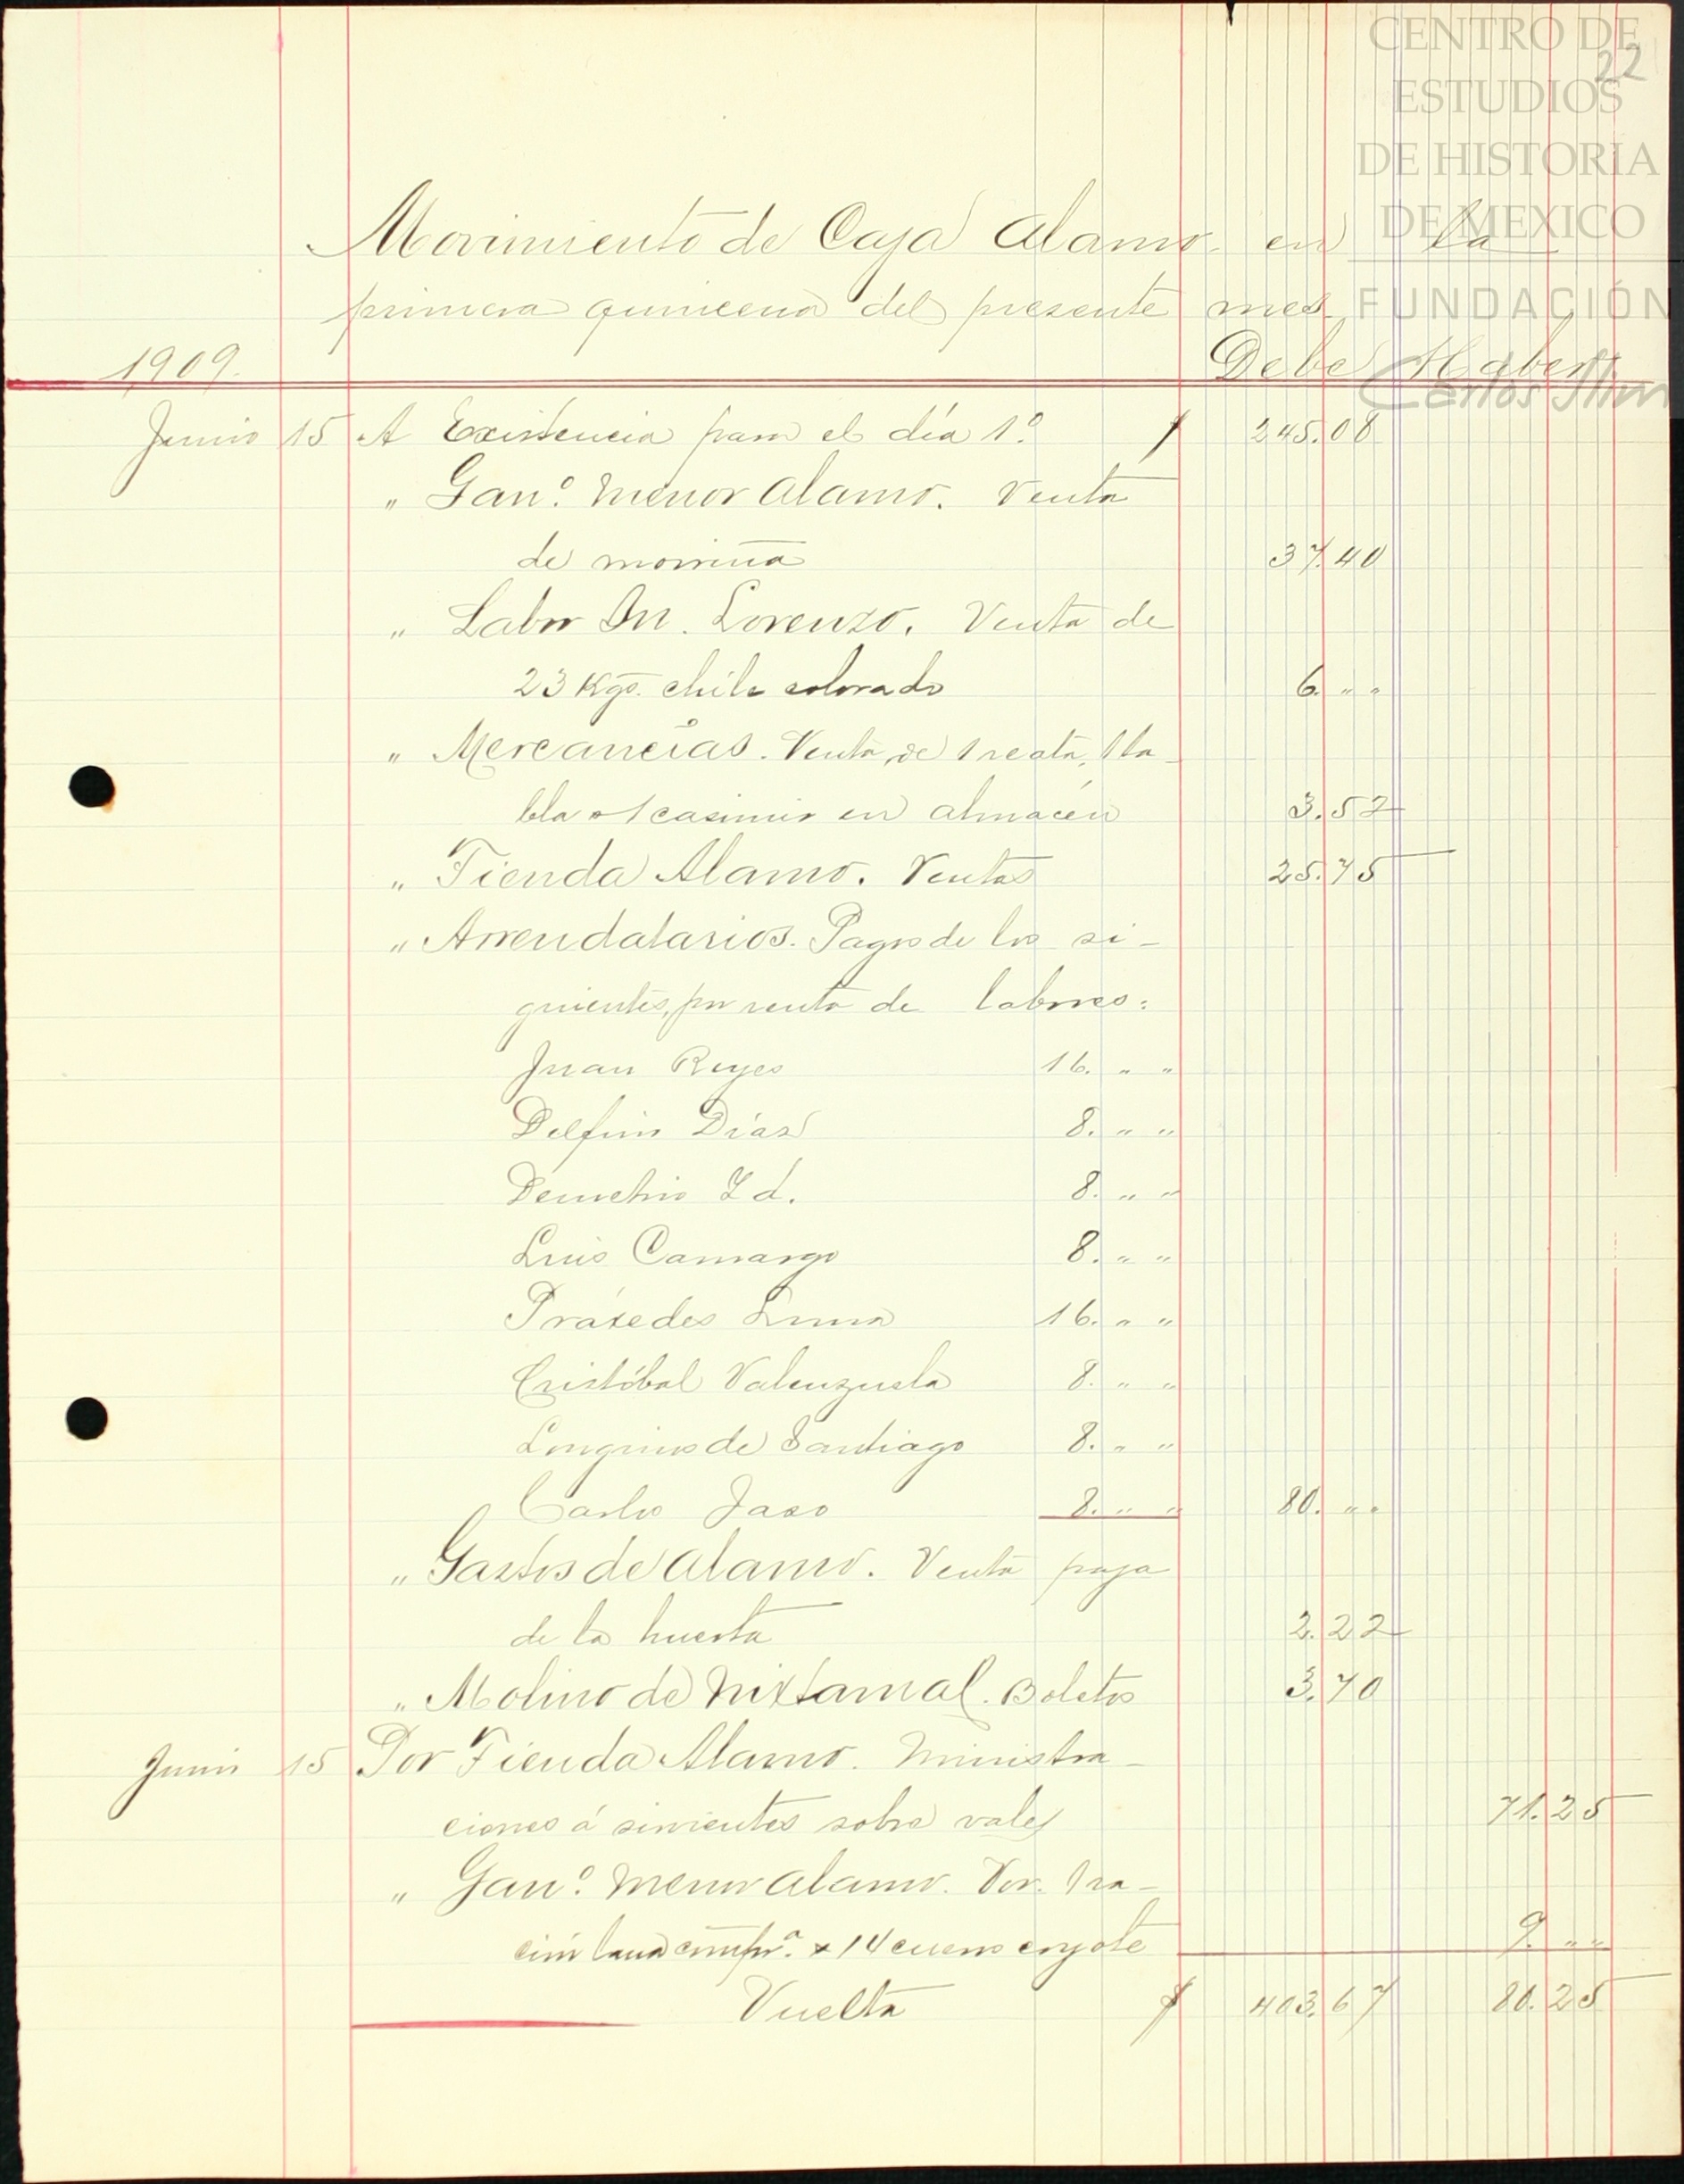 CENTRO DE
22
ESTUDIOS
DE HISTORIA
DE MEXICO
FUNDACIÓN
Carlos Slim
Movimiento de Caja Alamo en la
primera quincena del presente mes
1909. Debe Haber
Junio 15 A Existencia para el día 1º $ 245.08
" Ganº. menor Alamo. Venta
de morriña 37.40
" Labor Sn. Lorenzo. Venta de
23 Kgs. chile colorado 6. " "
" Mercancías. Venta, de 1 reata, 1 ta-
bla + 1 casimir en almacén 3.52
" Tienda Alamo. Ventas 25.75
" Arrendatarios. Pagos de los si-
guientes, por renta de labores:
Juan Reyes 16. " "
Delfino Díaz 8. " "
Demetrio Id. 8. " "
Luis Camargo 8. " "
Práxedes Luna 16. " "
Cristóbal Valenzuela 8. " "
Longinos de Santiago 8. " "
Carlos Jaso 8. " " 80. " "
" Gastos de Alamo. Venta paja
de la huerta 2.22
" Molino de Nixtamal. Boletos 3.70
Junio 15 Por Tienda Alamo. Ministra-
ciones á sirvientes sobre vales 71.25
" Ganº. menor Alamo. Por tra-
lana compº. + 14 cueros coyote 9. " "
Vuelta $ 403.67 80.25